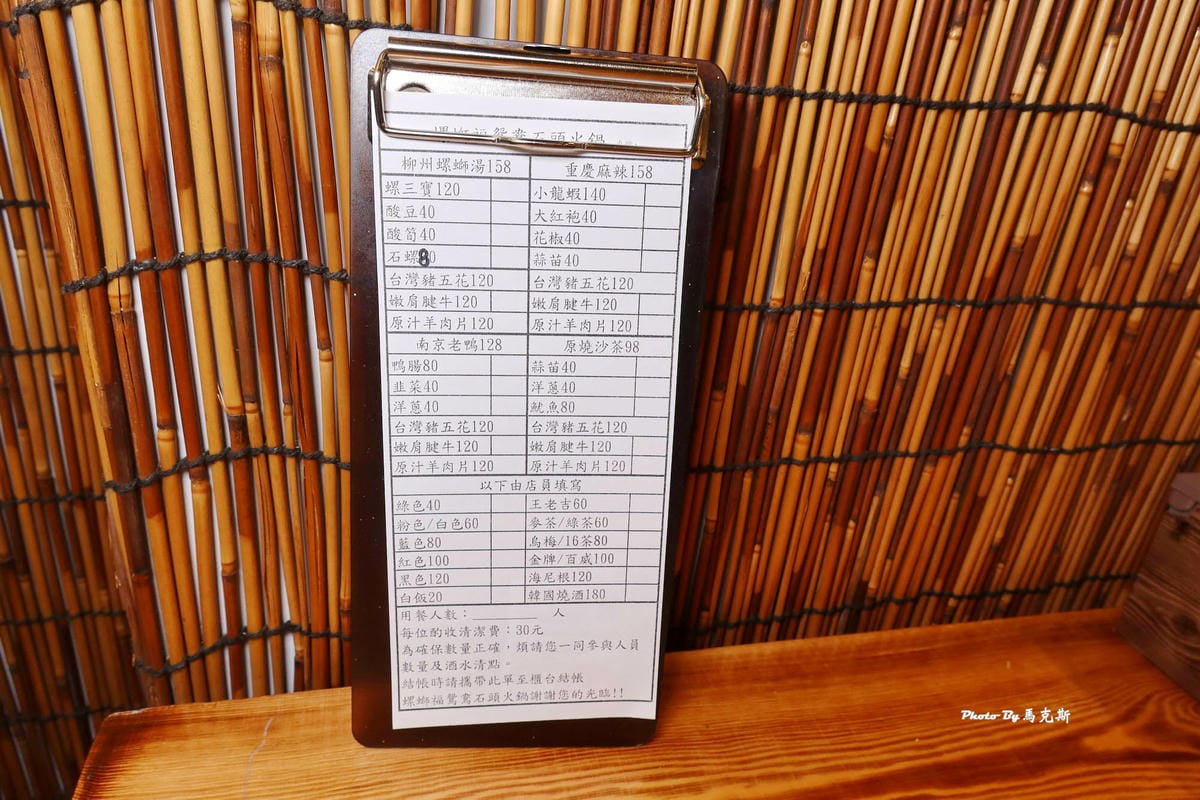 螺螄福鴛鴦石頭火鍋
柳州螺螄湯158 重慶麻辣158
螺三寶120 小龍蝦140
酸豆40 大紅袍40
酸筍40 花椒40
石螺80 蒜苗40
台灣豬五花120 台灣豬五花120
嫩肩腱牛120 嫩肩腱牛120
原汁羊肉片120 原汁羊肉片120
南京老鴨128 原燒沙茶98
鴨腸80 蒜苗40
韭菜40 洋蔥40
洋蔥40 魷魚80
台灣豬五花120 台灣豬五花120
嫩肩腱牛120 嫩肩腱牛120
原汁羊肉片120 原汁羊肉片120
以下由店員填寫
綠色40 王老吉60
粉色/白色60 麥茶/綠茶60
藍色80 烏梅/16茶80
紅色100 金牌/百威100
黑色120 海尼根120
白飯20 韓國燒酒180
用餐人數：________ 人
每位酌收清潔費：30元
為確保數量正確，煩請您一同參與人員
數量及酒水清點。
結帳時請攜帶此單至櫃台結帳
螺螄福鴛鴦石頭火鍋謝謝您的光臨!!
Photo By 馬克斯